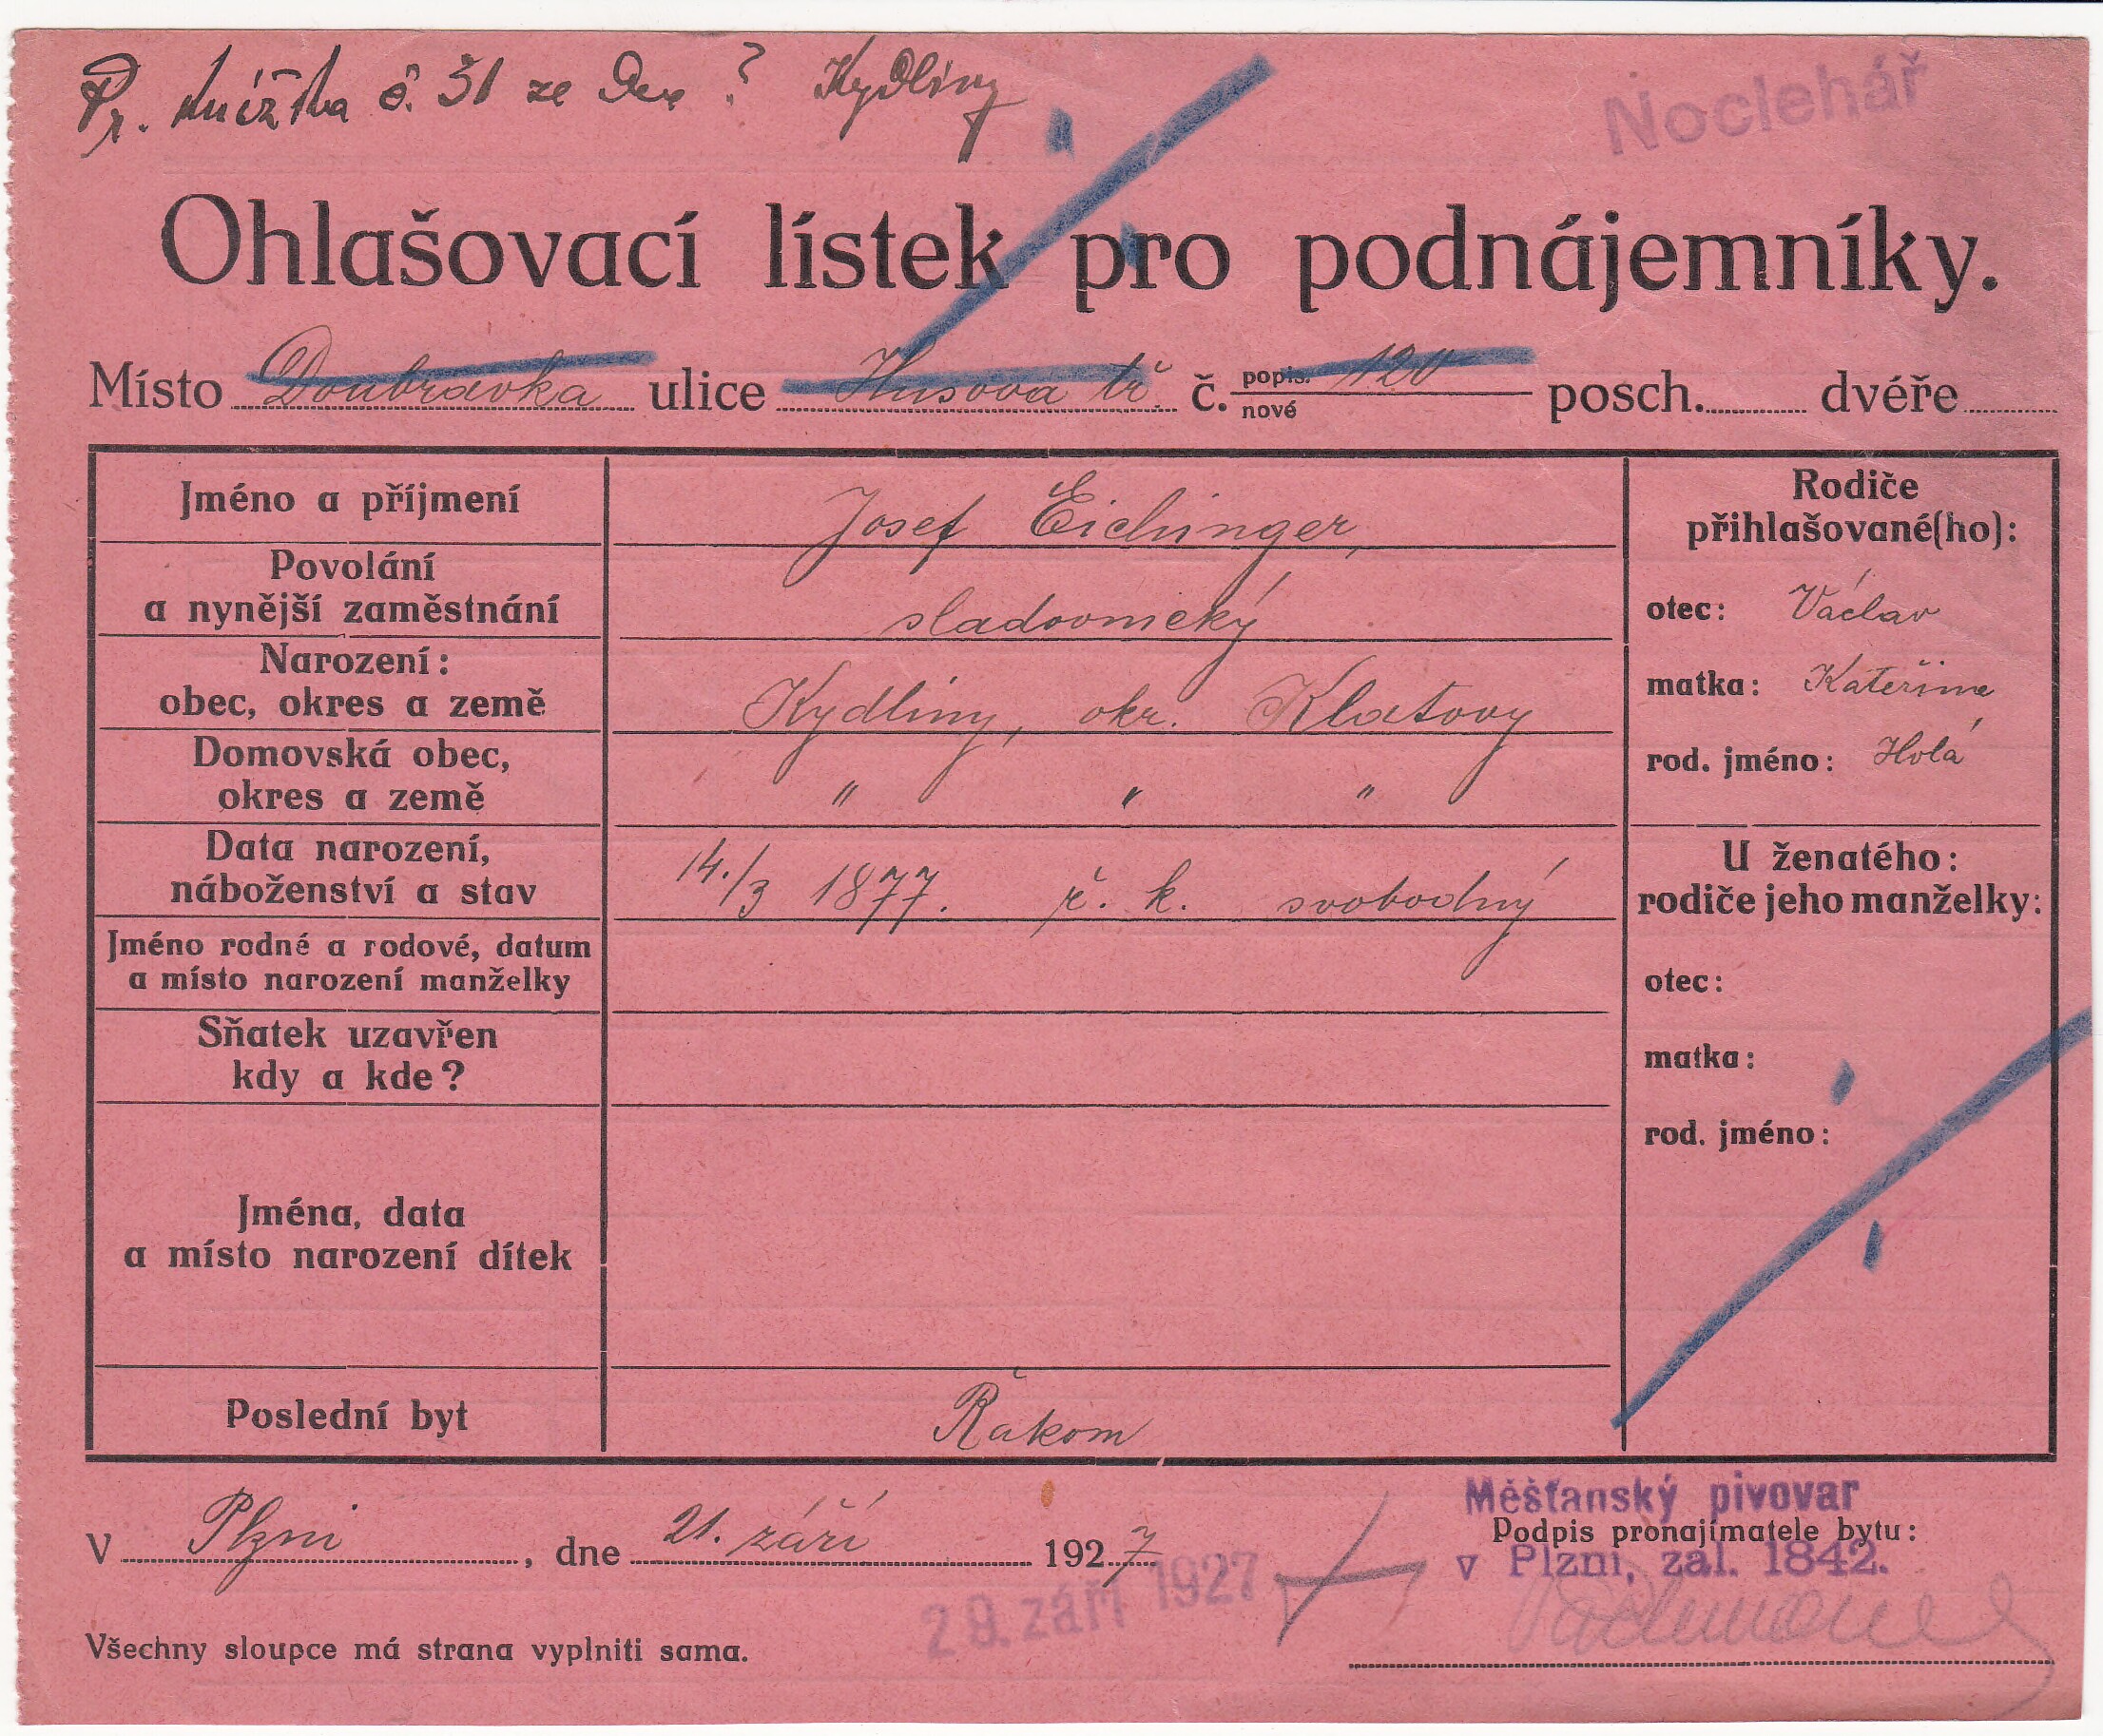 Pr. knížka č. 31 ze dne ? Kydliny
Noclehář
Ohlašovací lístek pro podnájemníky.
Místo Doubravka ulice Husova tř. č. popis. 120 nové posch. dvéře
Jméno a příjmení
Josef Eichinger,
Povolání
a nynější zaměstnání
sladovnický
Narození:
obec, okres a země
Kydliny, okr. Klatovy
Domovská obec,
okres a země
" " "
Data narození,
náboženství a stav
14./3 1877. ř. k. svobodný
Jméno rodné a rodové, datum
a místo narození manželky
Sňatek uzavřen
kdy a kde?
Jména, data
a místo narození dítek
Poslední byt
Řakom
Rodiče
přihlašované(ho):
otec: Václav
matka: Kateřina
rod. jméno: Holá
U ženatého:
rodiče jeho manželky:
otec:
matka:
rod. jméno:
V Plzni, dne 21. září 1927
Měšťanský pivovar
Podpis pronajímatele bytu:
v Plzni, zal. 1842.
29. září 1927
Všechny sloupce má strana vyplniti sama.